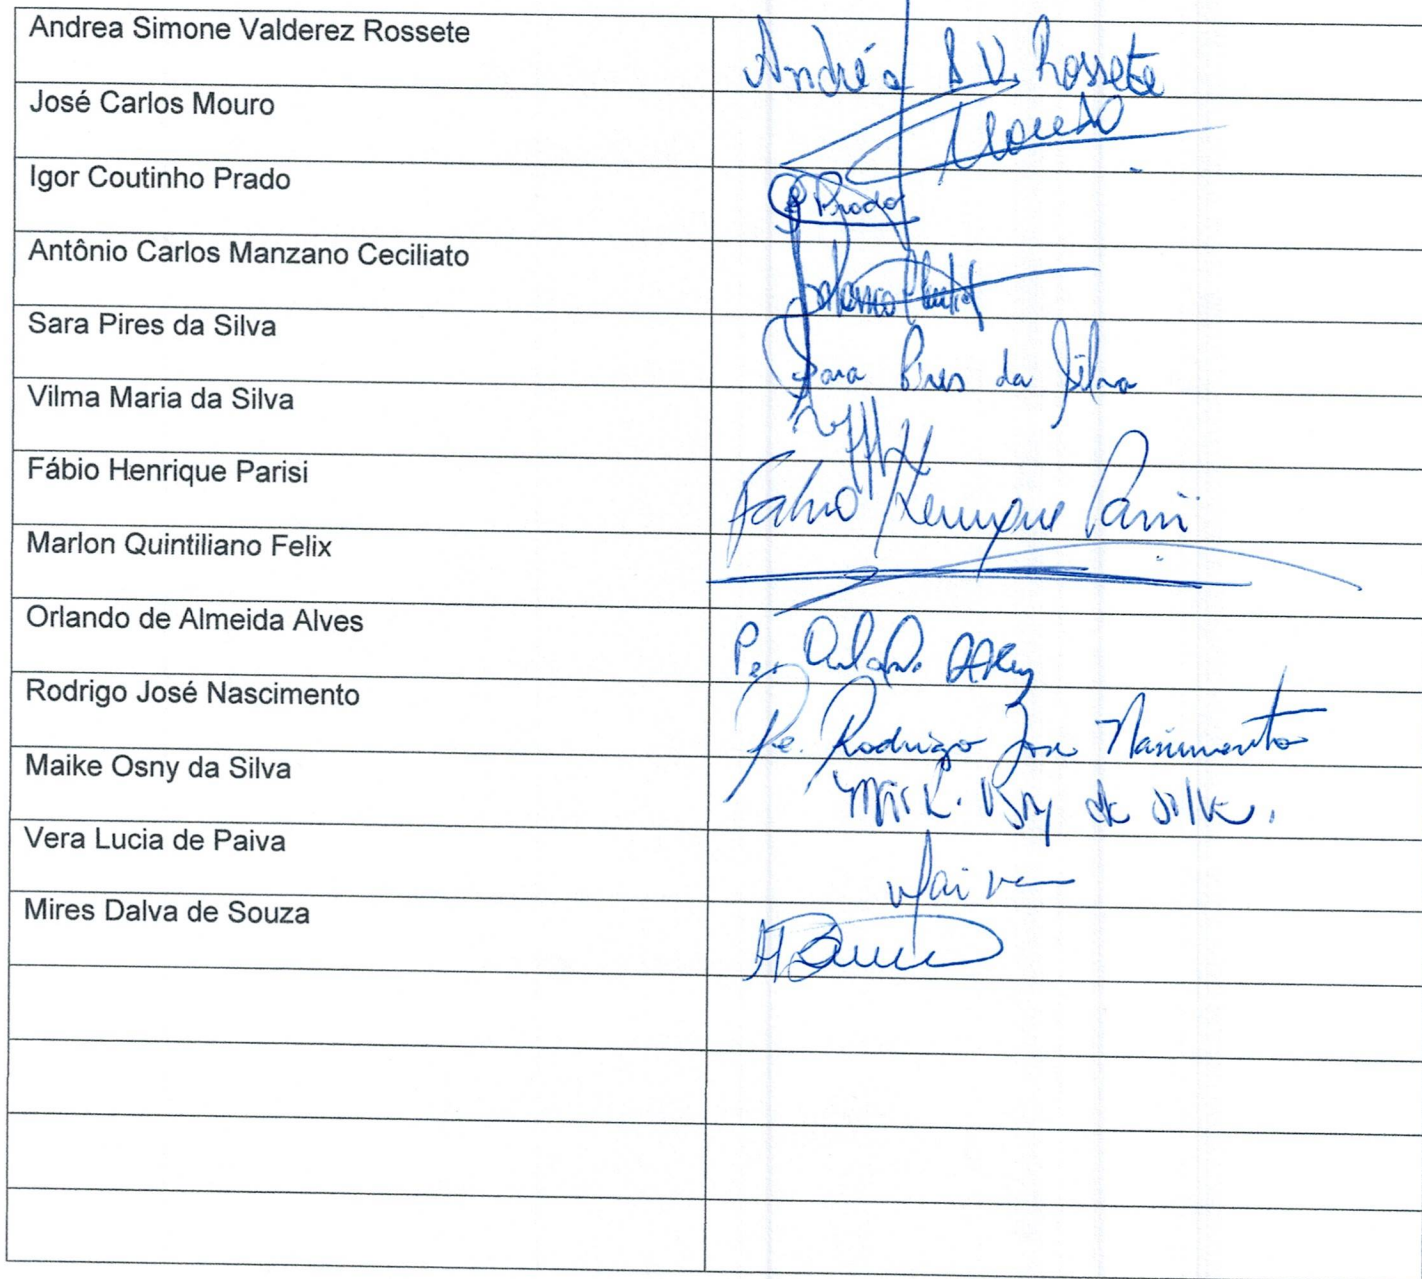 Andrea Simone Valderez Rossete
Andréa S V. Rossete
José Carlos Mouro
Mouro
Igor Coutinho Prado
Prado
Antônio Carlos Manzano Ceciliato
Sara Pires da Silva
Sara Pires da Silva
Vilma Maria da Silva
Fábio Henrique Parisi
Fabio Henrique Parisi
Marlon Quintiliano Felix
Orlando de Almeida Alves
Pe. Orlando
Rodrigo José Nascimento
Pe. Rodrigo José Nascimento
Maike Osny da Silva
da Silva.
Vera Lucia de Paiva
Paiva
Mires Dalva de Souza